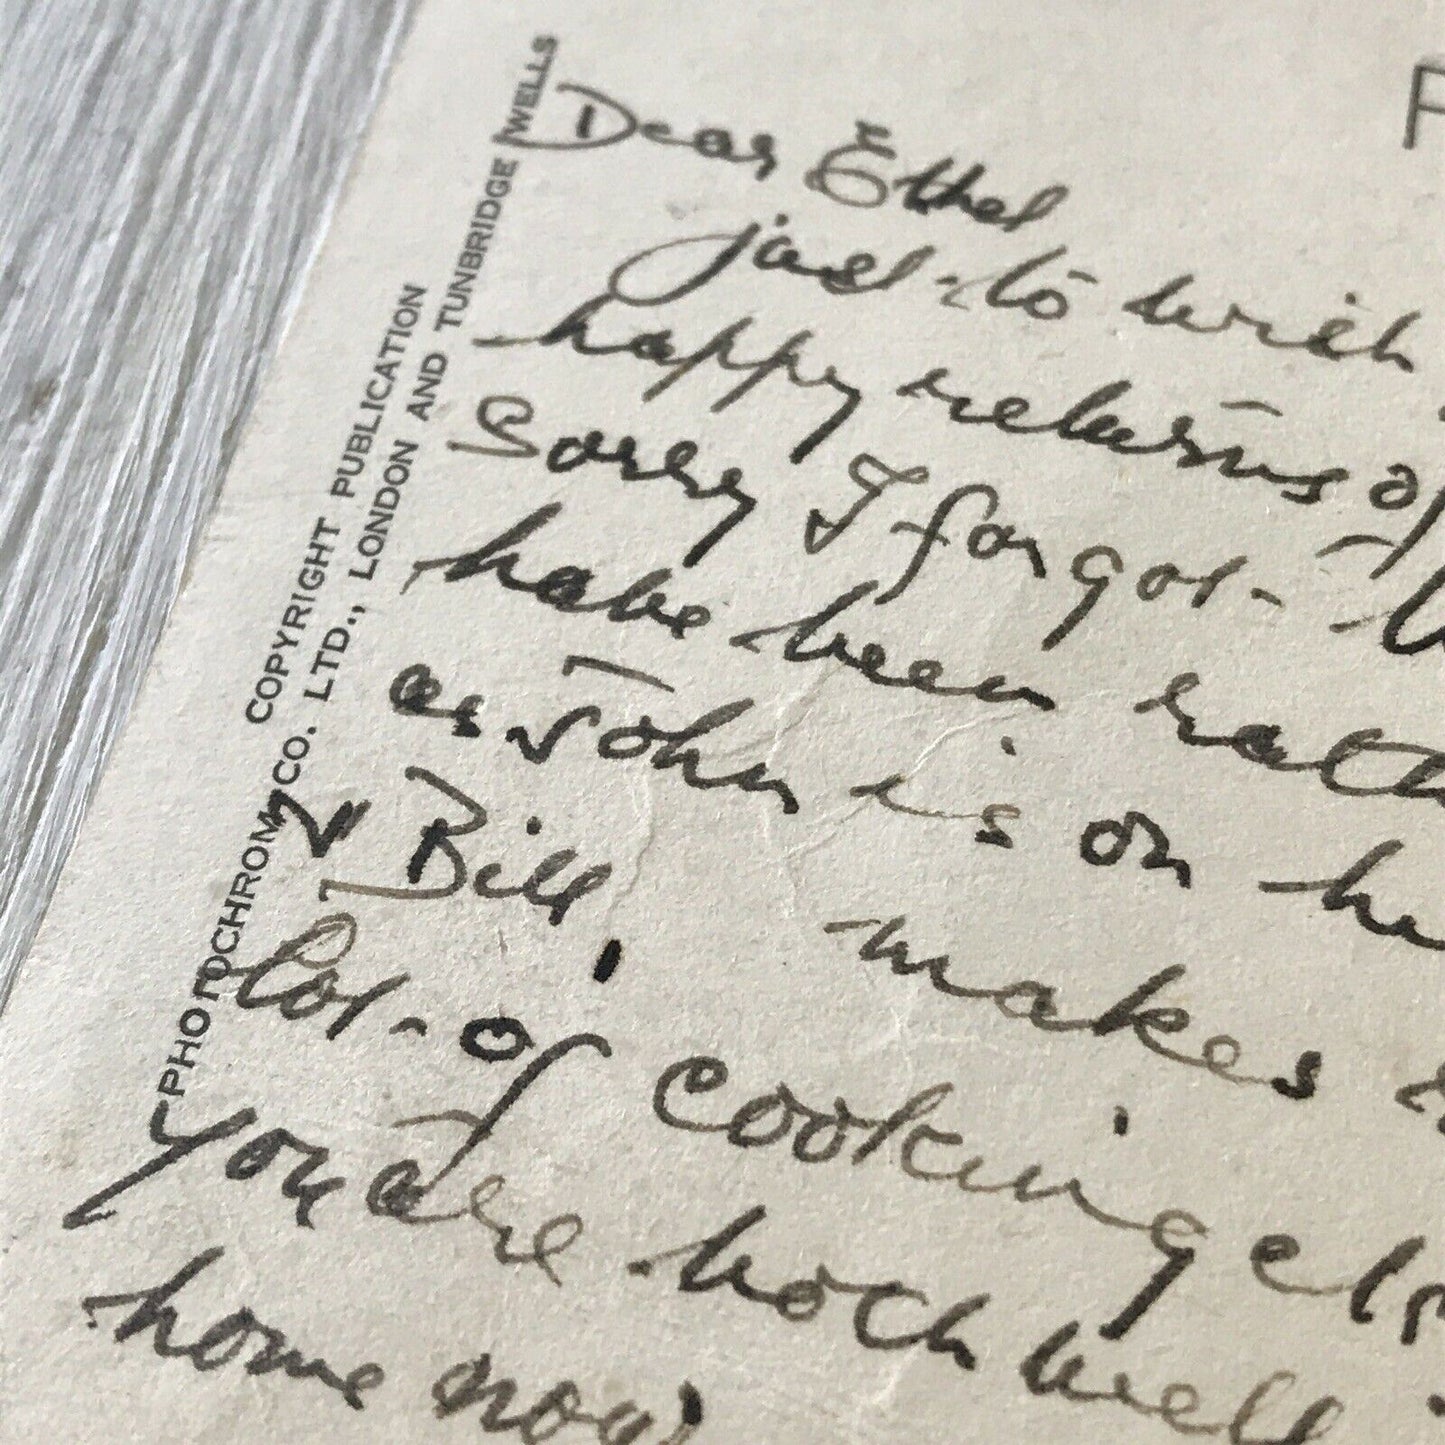 COPYRIGHT PUBLICATION
PHOTOCHROM CO. LTD., LONDON AND TUNBRIDGE WELLS
P
Dear Ethel
just to wish
happy returns of
Sorry I forgot
have been rath
as John is on ho
& Bill, makes
lot of cooking etc
you are both well
home now